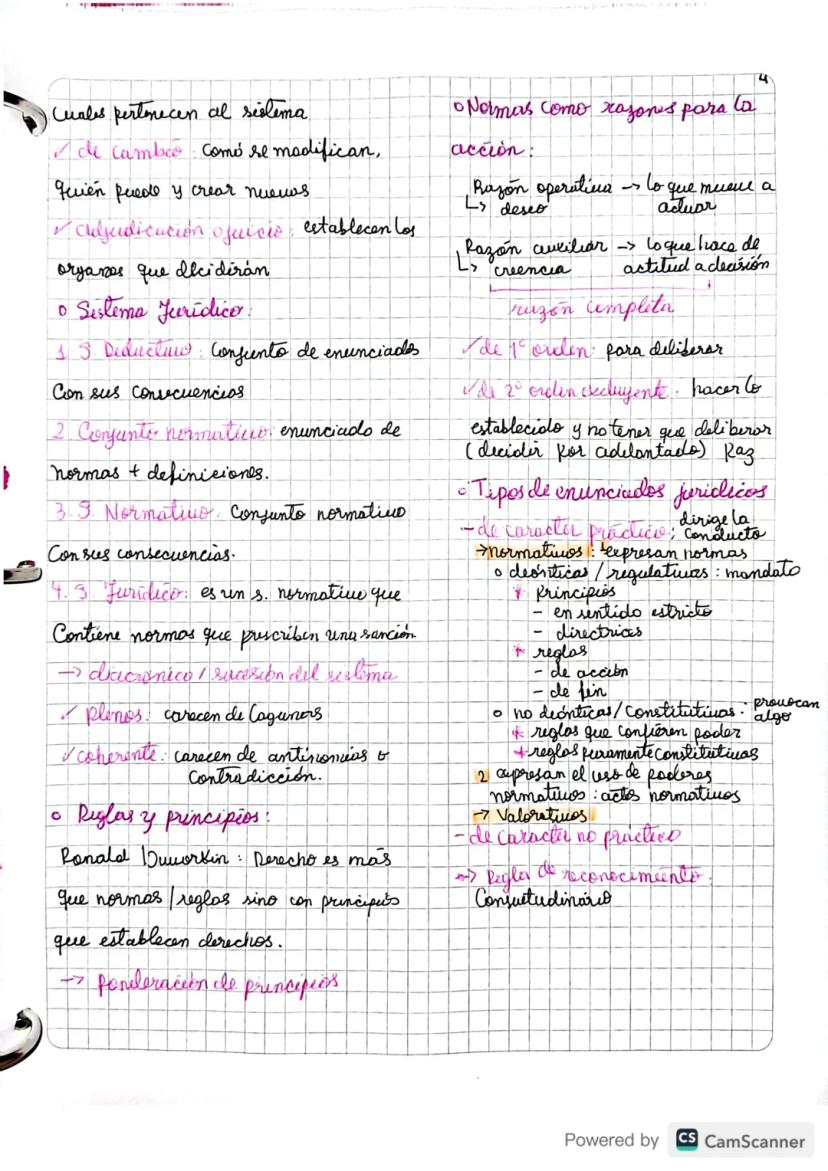 4
cuales pertenecen al sistema
✓ de cambio: como se modifican,
quién puede y crear nuevas
✓ adjudicación o juicio: establecen los
organos que decidirán
o Sistema Jurídico:
1. S Deductivo: Conjunto de enunciados
con sus consecuencias
2. Conjunto normativo: enunciado de
normas + definiciones.
3. S. Normativo: Conjunto normativo
con sus consecuencias.
4. S. Jurídico: es un s. normativo que
contiene normas que prescriben una sanción
→ diacrónico / sucesión del sistema
✓ plenos: carecen de lagunas
✓ coherente: carecen de antinomias o
contradicción.
o Reglas y principios:
Ronald Dworkin: Derecho es más
que normas/reglas sino con principios
que establecen derechos.
→ ponderación de principios
o Normas como razones para la
acción:
Razón operativa → lo que mueve a
↳ deseo actuar
Razón auxiliar → lo que hace de
↳ creencia actitud a decisión
razón completa
✓ de 1º orden: para deliberar
✓ de 2º orden excluyente: hacer lo
establecido y no tener que deliberar
(decidir por adelantado) Raz
o Tipos de enunciados jurídicos
- de caracter práctico: dirige la
conducta
→ normativos: expresan normas
o deónticas / regulativas: mandato
* principios
- en sentido estricto
- directrices
* reglas
- de acción
- de fin
o no deónticas/constitutivas: provocan
algo
* reglas que confieren poder
* reglas puramente constitutivas
2 expresan el uso de poderes
normativos: actos normativos
→ Valorativos
- de caracter no práctico
→ Regla de reconocimiento:
Consuetudinario
Powered by CS CamScanner